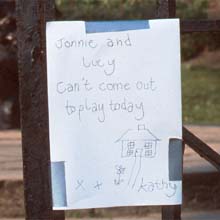 Jonnie and
Lucy
Can't come out
to play today
x x Kathy